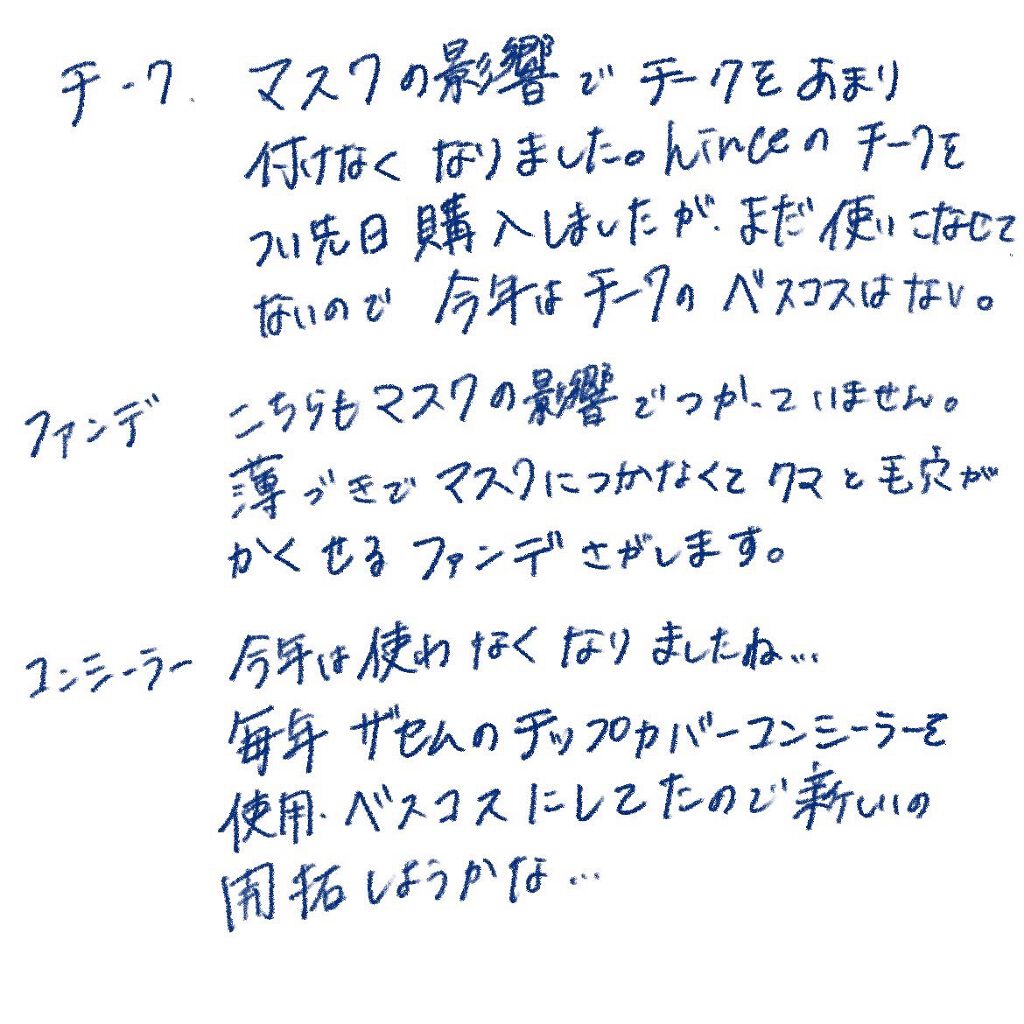 チーク マスクの影響でチークをあまり
付けなくなりました。hinceのチークを
つい先日購入しましたが、まだ使いこなせて
ないので今年はチークのベスコスはない。
ファンデ こちらもマスクの影響でつかっていません。
薄づきでマスクにつかなくてクマと毛穴が
かくせるファンデさがします。
コンシーラー 今年は使わなくなりましたね…
毎年ザセムのチップカバーコンシーラーを
使用、ベスコスにしてたので新しいの
開拓しようかな…